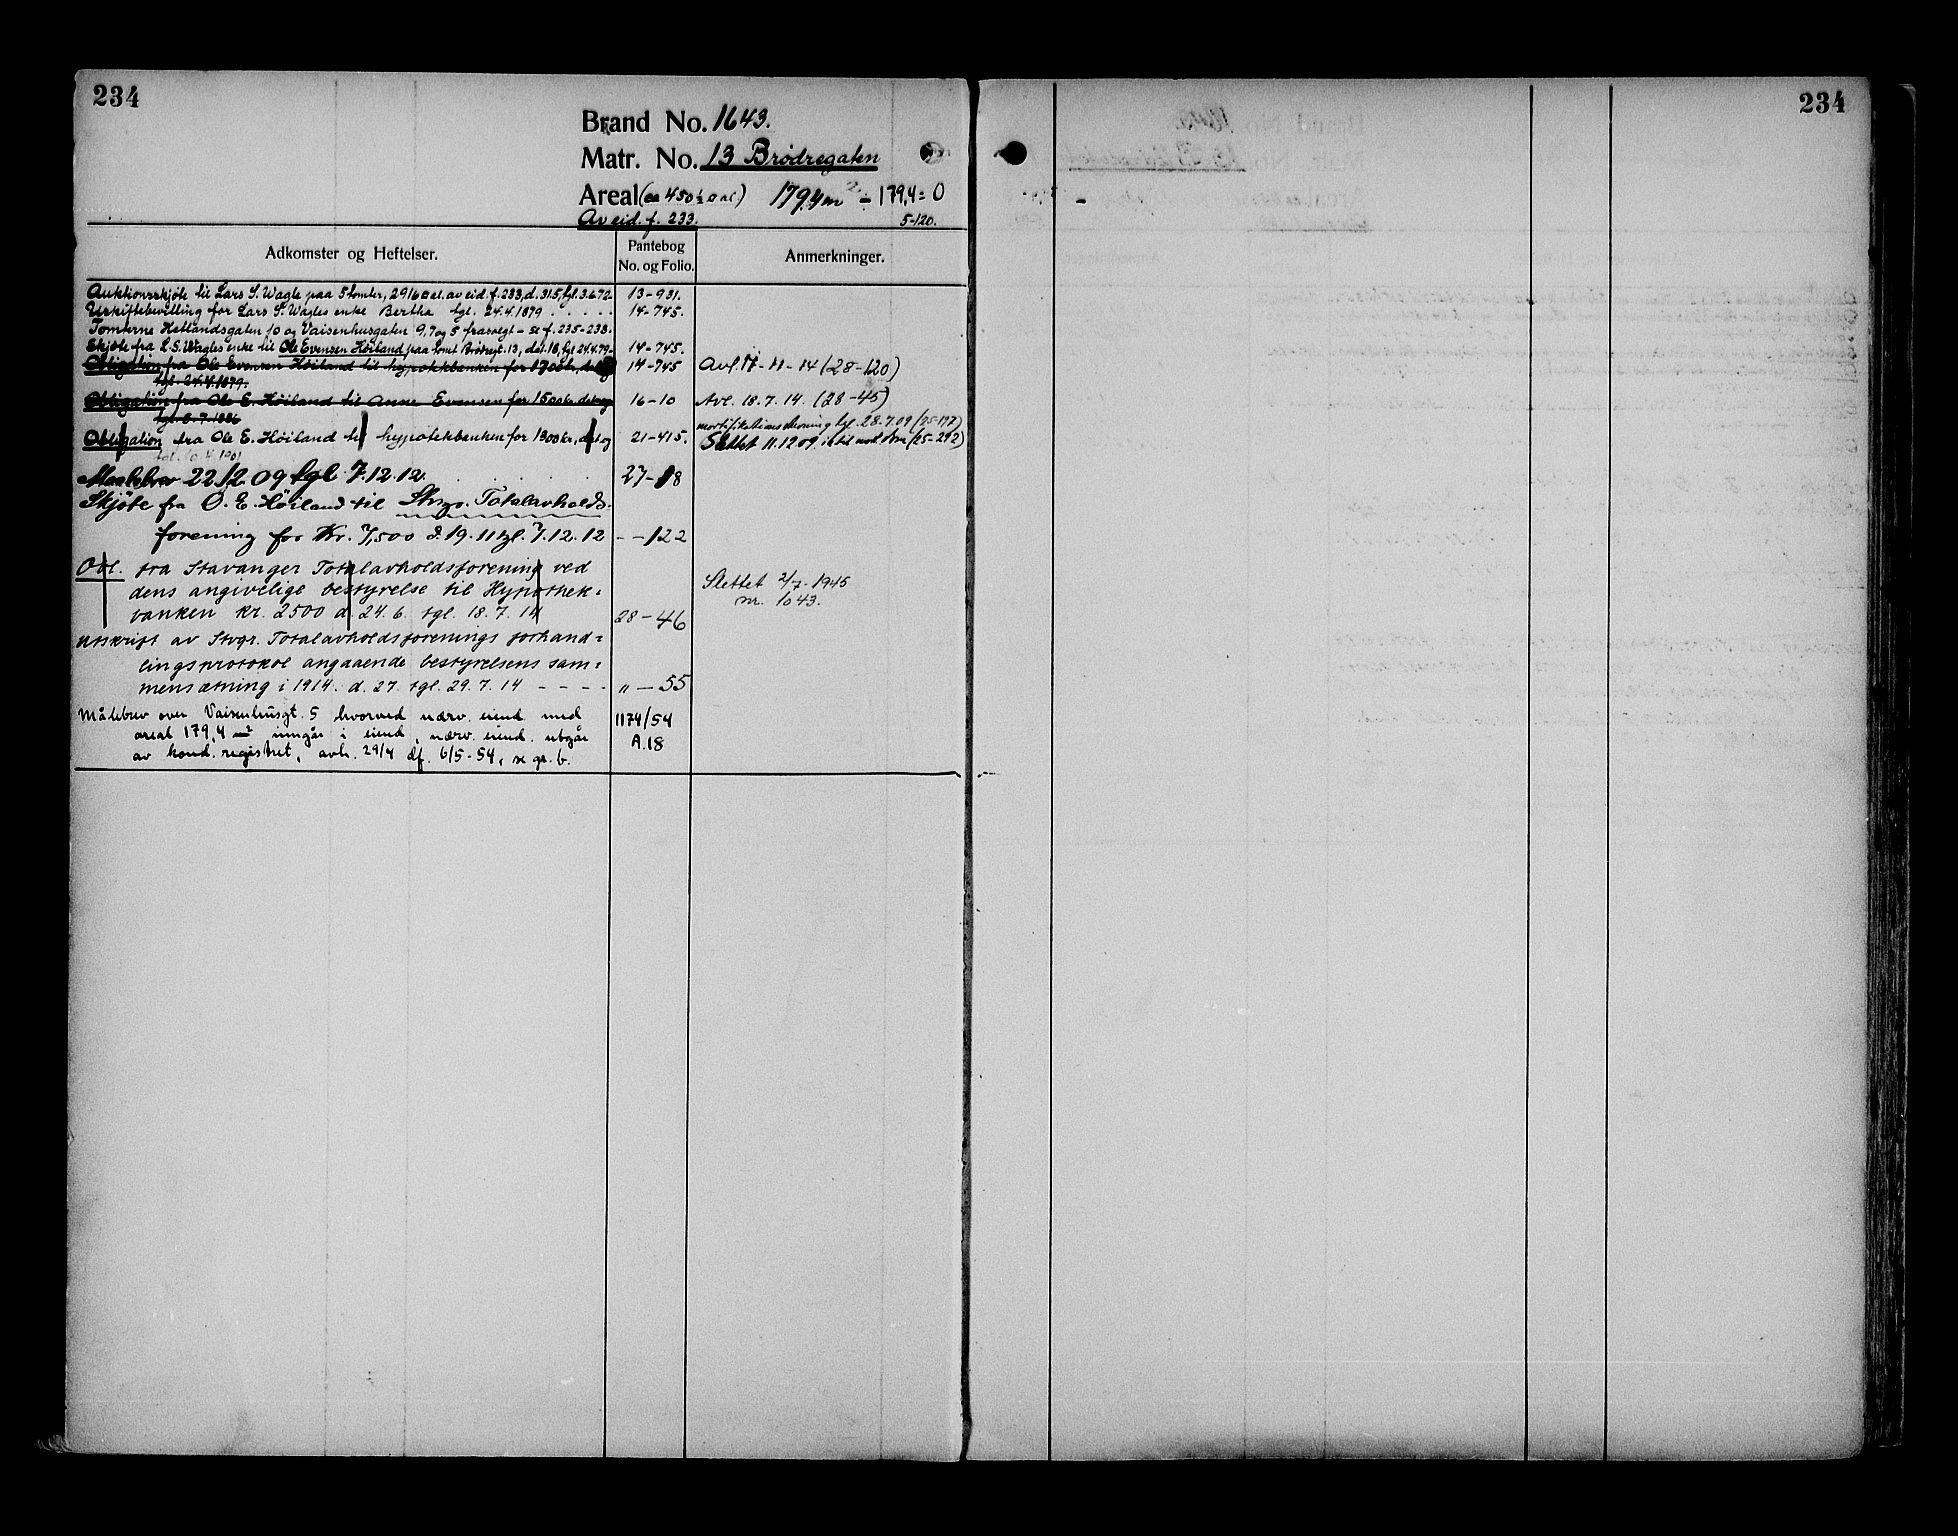 234
234
Brand No. 1643.
Matr. No. 13 Brødregaten
Areal (ca 450½ □ al.) 179,4 m² - 179,4 = 0
Av eid. f. 233. 5-120.
Adkomster og Heftelser.
Pantebog No. og Folio.
Anmerkninger.
Auktionsskjøte til Lars S. Wagle paa 5 tomter, 2916 □ al. av eid. f. 233, d. 31.5, tgl. 3.6.72. 13-931.
Uskiftebevilling for Lars S. Wagles enke Bertha tgl. 24.4.1879 . . . . . 14-745.
Tomterne Hetlandsgaten 10 og Vaisenhusgaten 9, 7 og 5 frasolgt - se f. 235-238.
Skjøte fra L. S. Wagles enke til Ole Evensen Høiland paa tomt Brødregt. 13, dat. 18, tgl. 24.4.79. 14-745.
Obligation fra Ole Evensen Høiland til hypotekbanken for 1700 kr, dat. og 14-745 Avl. 17-11-14 (28-120)
tgl. 24.4.1879.
Obligation fra Ole E. Høiland til Anne Evensen for 1500 kr. dat. og 16-10 Avl. 18.7.14. (28-45)
tgl. 8.7.1886
mortifikationsskjønning tgl. 28.7.09 (25-177)
Obligation fra Ole E. Høiland til hypotekbanken for 1300 kr, dat. og 21-415. Slettet 11.12.09. (25-292)
Maalebrev 22/2 09 tgl 7.12.12. 27-18
Skjøte fra O. E. Høiland til Stvgr. Totalavholds-
forening for Kr. 7,500 d. 19.11 tgl. 7.12.12 - -122
Obl. fra Stavanger Totalavholdsforening ved
dens angivelige bestyrelse til Hypothek- Slettet 2/7-1945
banken kr. 2500 d. 24.6. tgl. 18.7.14 28-46 nr. 1043.
Utskrift av Stvgr. Totalavholdsforenings forhand=
lingsprotokol angaaende bestyrelsens sam=
mensætning i 1914. d. 27. tgl. 29.7.14 - - - - " - 55
Målebrev over Vaisenhusgt. 5 hvorved nærv. eiend. med 1174/54
areal 179,4 m² inngår i eiend, nærv. eiend. utgår A.18
av hond. registret, avh. 29/4 df. 6/5-54, se gr. b.